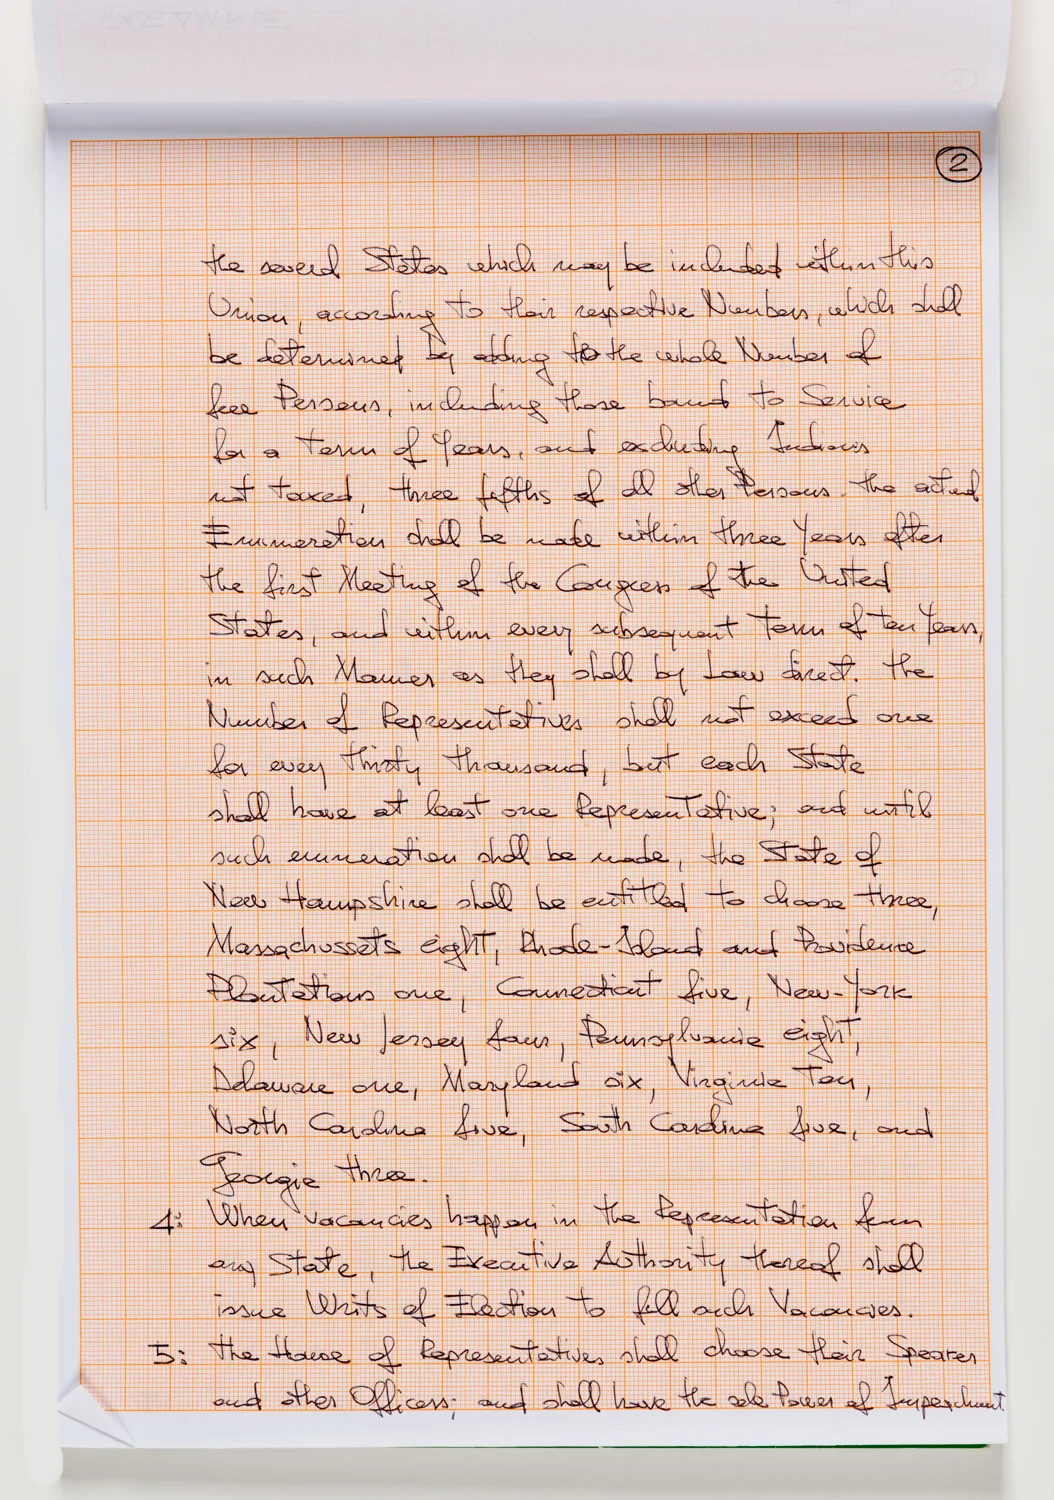 2
the several States which may be included within this
Union, according to their respective Numbers, which shall
be determined by adding to the whole Number of
free Persons, including those bound to Service
for a Term of Years, and excluding Indians
not taxed, three fifths of all other Persons. the actual
Enumeration shall be made within three Years after
the first Meeting of the Congress of the United
States, and within every subsequent Term of ten Years,
in such Manner as they shall by Law direct. the
Number of Representatives shall not exceed one
for every thirty thousand, but each State
shall have at least one Representative; and until
such enumeration shall be made, the State of
New Hampshire shall be entitled to choose three,
Massachussets eight, Rhode-Island and Providence
Plantations one, Connecticut five, New-York
six, New Jersey four, Pennsylvania eight,
Delaware one, Maryland six, Virginia Ten,
North Carolina five, South Carolina five, and
Georgia three.
4: When vacancies happen in the Representation from
any State, the Executive Authority thereof shall
issue Writs of Election to fill such Vacancies.
5: the House of Representatives shall choose their Speaker
and other Officers; and shall have the sole Power of